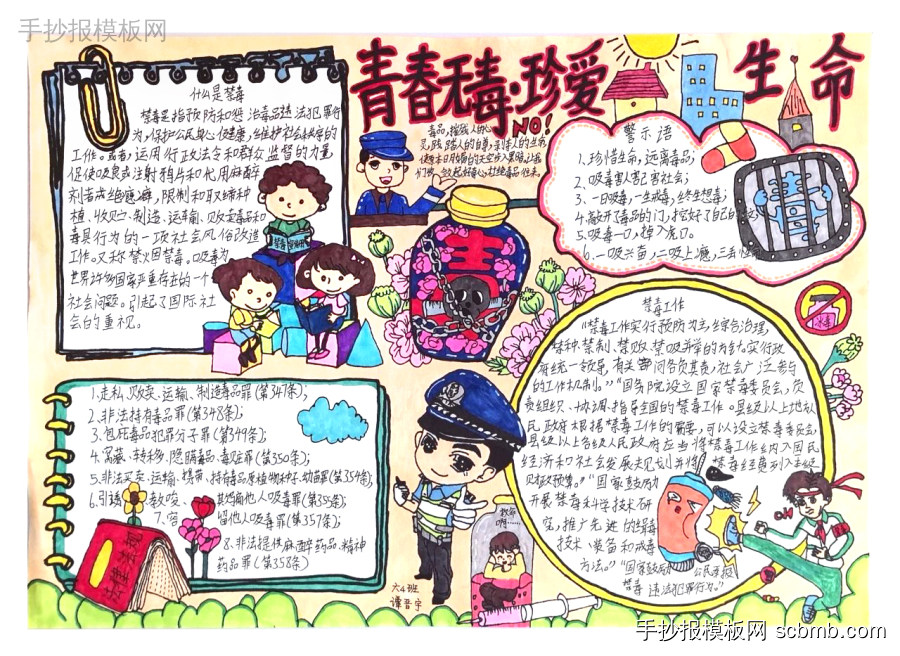 手抄报模板网
青春无毒·珍爱生命
什么是禁毒
禁毒是指预防和惩治毒品违法犯罪行
为,保护公民身心健康,维护社会秩序的
工作。运用行政法令和群众监督的力量,
促使吸食或注射鸦片和代用麻醉
剂者戒绝恶癖,限制和取缔种
植、收贮、制造、运输、贩卖毒品和
毒具行为的一项社会风俗改造
工作。又称禁火因禁毒。吸毒为
世界许多国家严重存在的一个
社会问题。引起了国际社
会的重视。
毒品,摧残人的
NO!
警示语
1、珍惜生命,远离毒品;
2、吸毒害人害己害社会;
3、一日吸毒,一生戒毒,终生想毒;
4、敲开了毒品的门,挖好了自己的
5、吸毒一口,掉入虎口。
6、一吸兴奋,二吸上瘾,三
毒
禁毒
禁毒工作
“禁毒工作实行预防为主,综合治理,
禁种、禁制、禁贩、禁吸并举的方针。实行政
府统一领导,有关部门各负其责,社会广泛参与
的工作机制。”“国务院设立国家禁毒委员会,负
责组织、协调、指导全国的禁毒工作。县级以上地方人
民政府根据禁毒工作的需要,可以设立禁毒委员会
县级以上各级人民政府应当将禁毒工作纳入国民
经济和社会发展规划,并将禁毒经费列入本级
财政预算。”“国家鼓励
开展禁毒科学技术研
究,推广先进的缉毒
技术、装备和戒毒
方法。”“国家鼓励公民举报
禁毒违法犯罪行为。”
OH
1、走私、贩卖、运输、制造毒品罪(第347条);
2、非法持有毒品罪(第348条);
3、包庇毒品犯罪分子罪(第349条);
4、窝藏、转移、隐瞒毒品、毒赃罪(第350条);
5、非法买卖、运输、携带、持有毒品原植物种子、幼苗罪(第354条);
6、引诱、教唆、其他人吸毒罪(第35条);
7、容留他人吸毒罪(第357条);
8、非法提供麻醉药品、精神
药品罪(第358条)
法律法规
救命
啊……
六4班
谭晋宇
手抄报模板网 scbmb.com